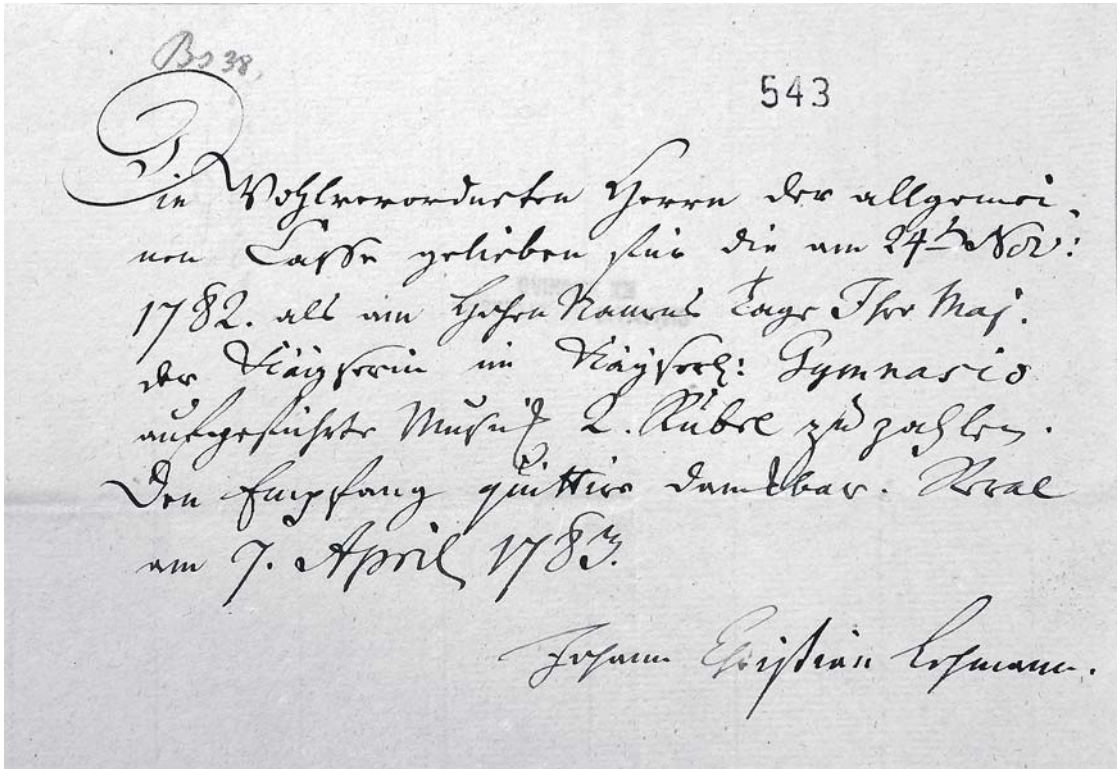 Bs 38.
543
Die Wohlverordneten Herrn der allgemei-
nen Casse gelieben für die am 24t Nov:
1782. als am Hohen Namens Tage Ihro Maj.
der Kaÿserin im Kaÿserl: Gymnasio
aufgeführte Musik 2. Rubel zu zahlen.
Den Empfang quittire dankbar. Reval
am 7. April 1783.
Johann Christian Lehmann.